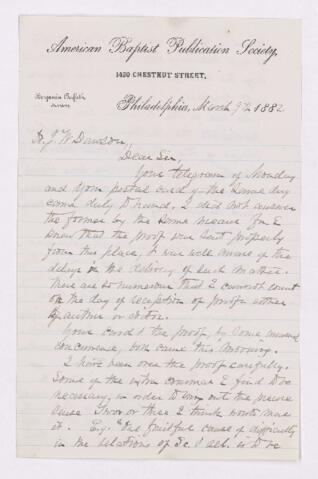 American Baptist Publication Society,
1420 CHESTNUT STREET,
Benjamin Griffith
Philadelphia, March 9th 1882
Dr J. W. Dawson,
Dear Sir,
Your telegram of Monday
and your postal card of the same day
came duly to hand. I did not answer
the former by the same means for I
knew that the proof was sent properly
from this place, & was well aware of the
delays in the delivery of such matter.
These are so numerous that I cannot count
on the day of reception of proofs either
by author or editor.
Your card & the proof, by some
concurrence, both came this morning.
I have been over the proof carefully.
Some of the extra commas I find to be
necessary, in order to bring out the precise
sense. Two or three I think would
it. E.g. "the fruitful cause of difficulty
in the relations of Sc. & rel. is to be